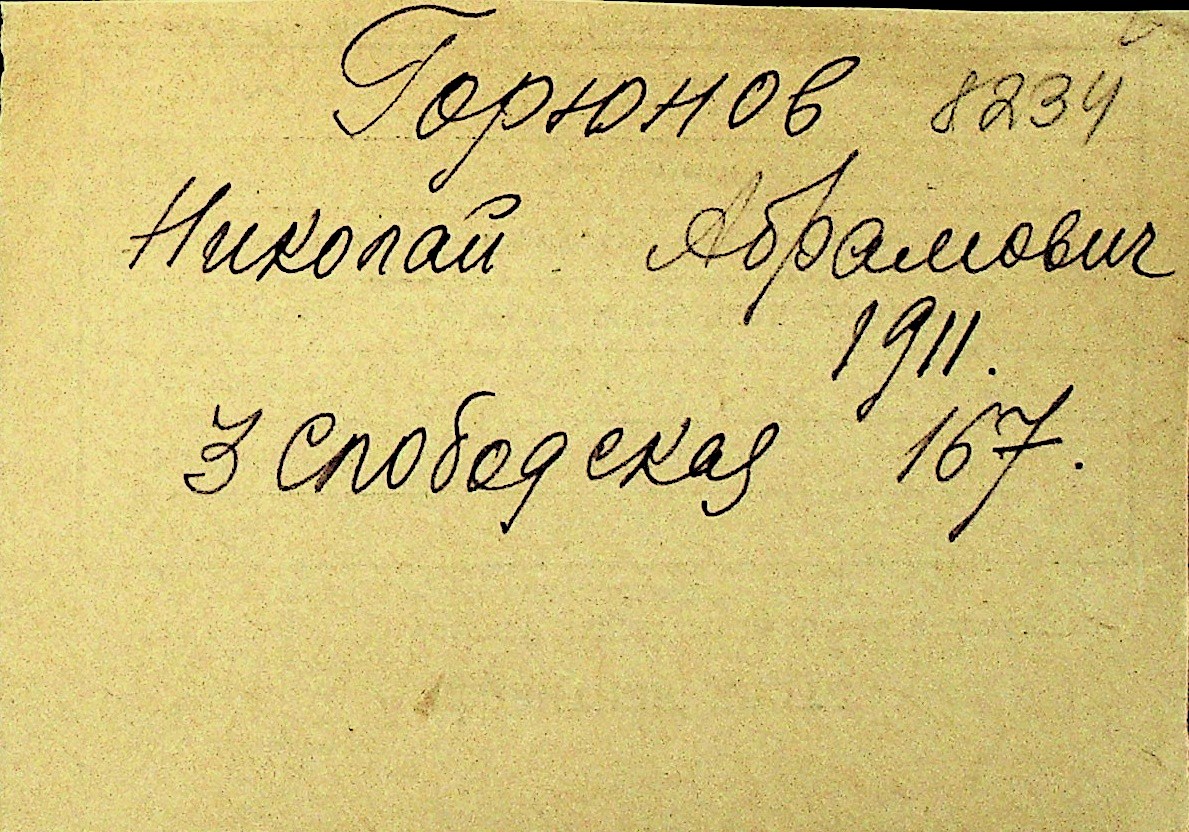 Горюнов 8234
Николай Абрамович
1911.
3 Слободская 167.